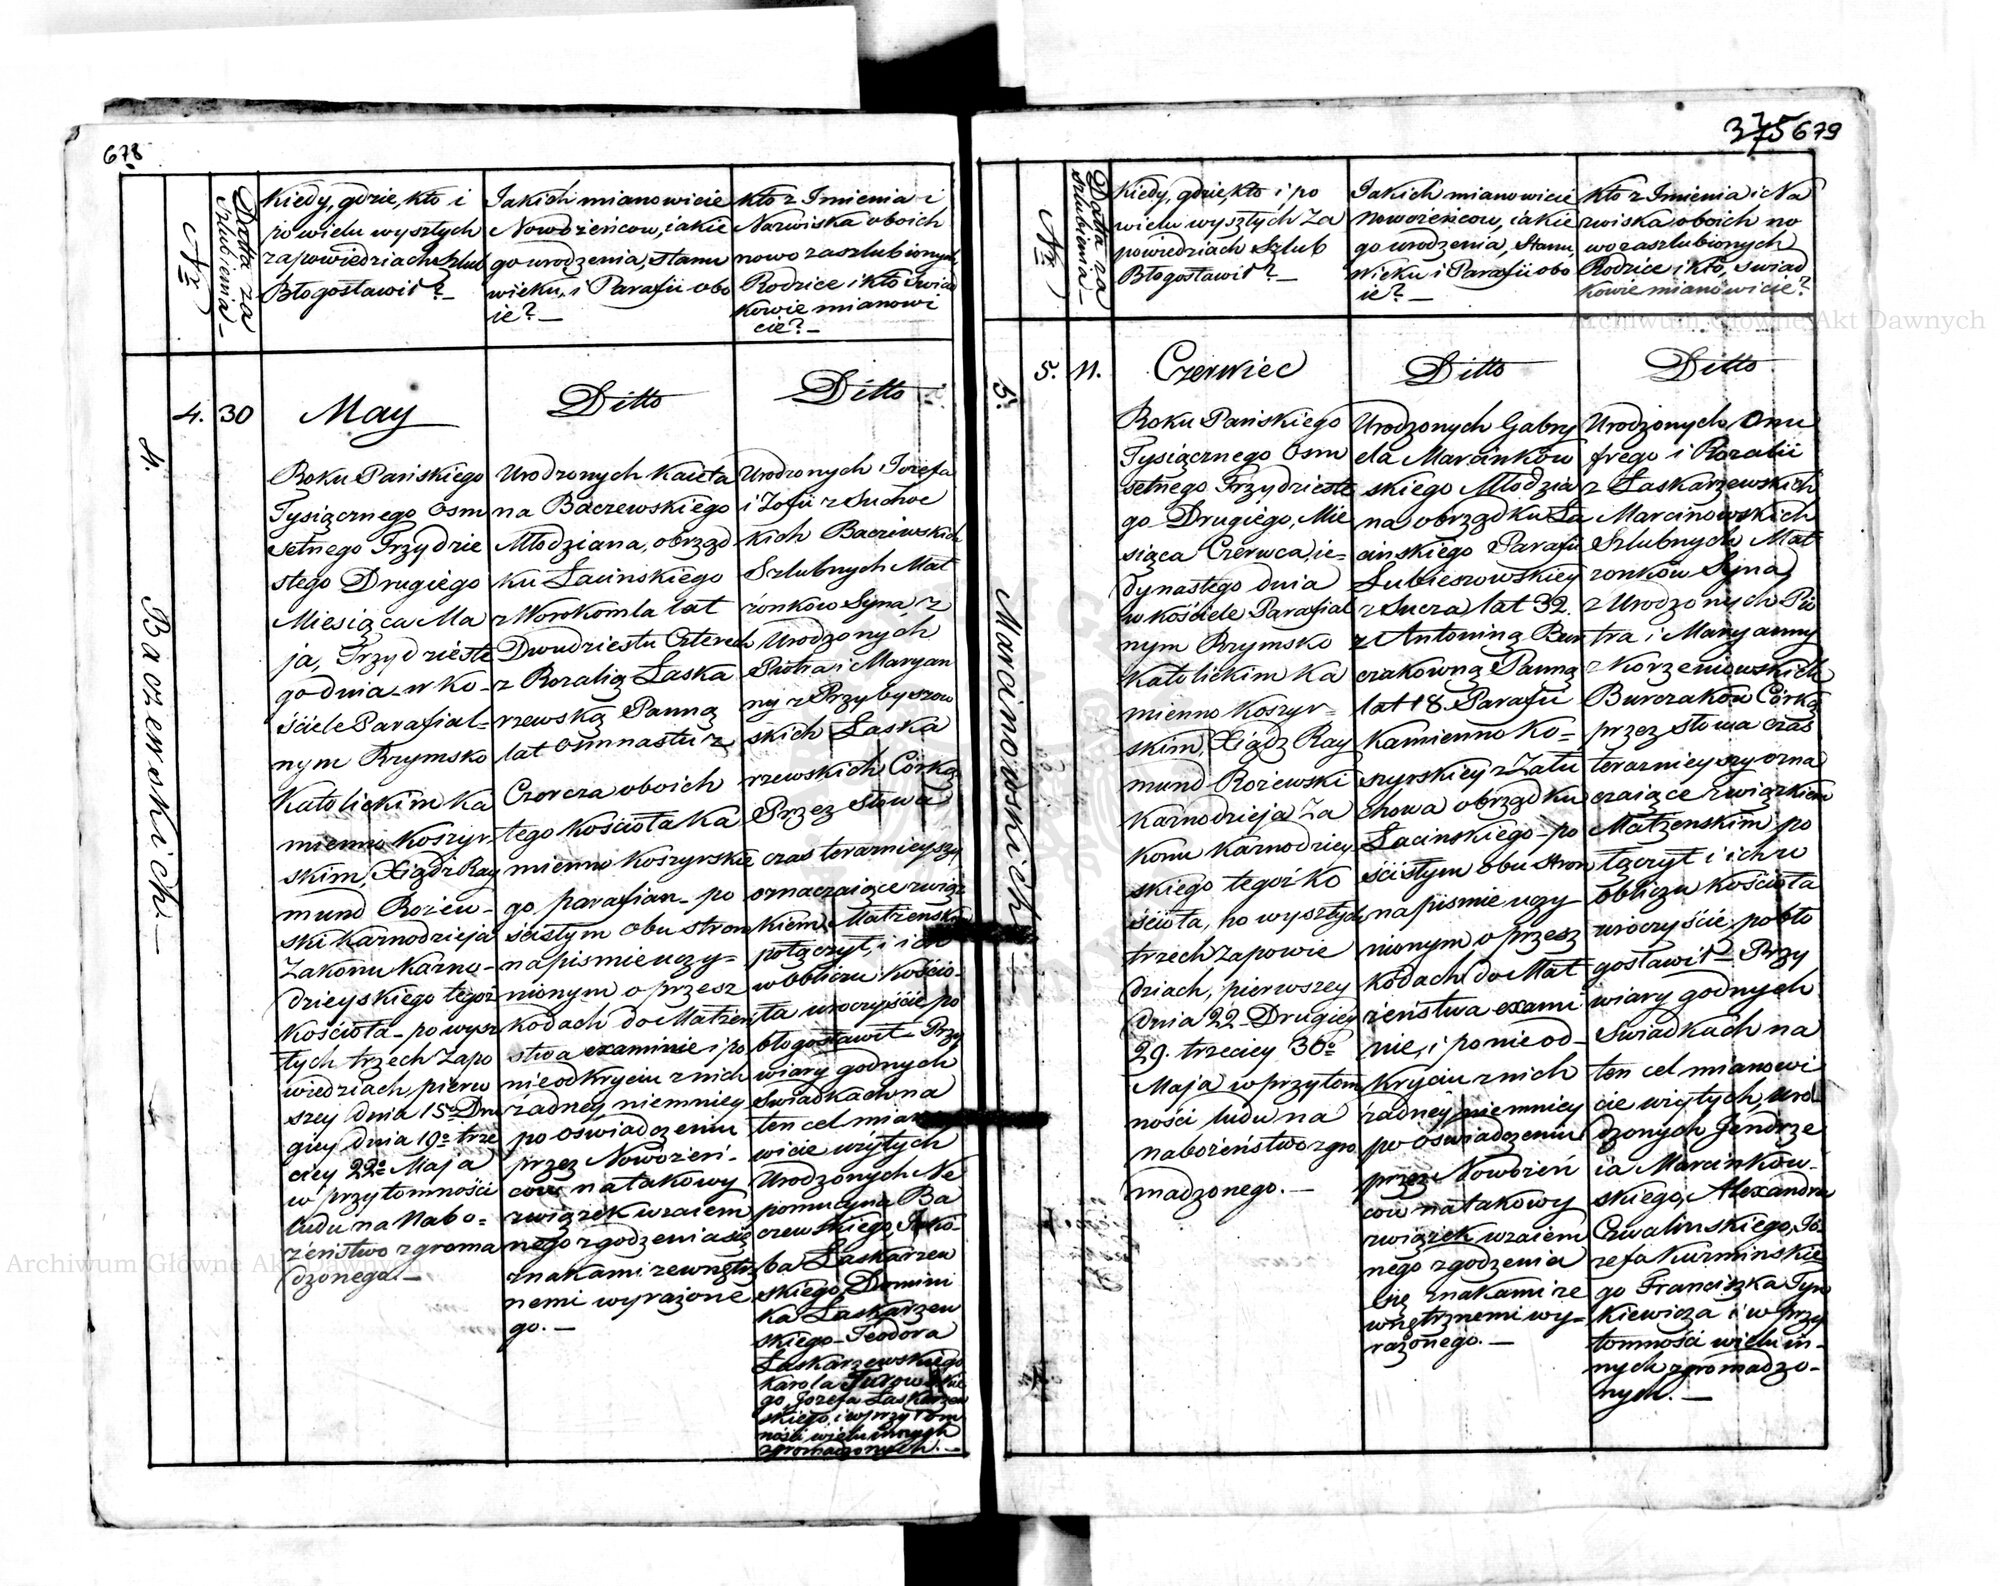 678
Nr
Datta za
szlubienia
Kiedy, gdzie, kto i
po wielu wyszłych
zapowiedziach Szlub
Błogosławił?
Jakich mianowicie
Nowożeńcow, iakie
go urodzenia, stanu
wieku, i Parafii obo
ie?
Kto z Imienia i
Nazwiska oboich
nowo zaszlubionych
Rodzice i kto Swiad
kowie mianowi
cie?
4.
Baczewskich.
4.
30
May
Roku Pańskiego
Tysiącznego Osm
setnego Trzydzie
stego Drugiego
Miesiąca Ma
ja, Trzydzieste
go dnia w Ko-
ściele Parafial-
nym Rzymsko
Katolickim Ka
mienno Koszyr
skim, Xiądz Ray
mund Rożew-
ski Karnodzieja
Zakonu Karno-
dzieyskiego tegoż
Kościoła po wysz
łych trzech Zapo
wiedziach, pierw
szey dnia 15o Dru
giey dnia 19o trze
ciey 22o Maja
w przytomności
ludu na Nabo=
żeństwo zgroma
dzonego.
Ditto
Urodzonych Kaieta
na Baczewskiego
Młodziana, obrząd
ku Łacinskiego
z Worokomla lat
Dwudziestu Czterech
z Rozalią Łaska
rzewską Panną
lat osmnastu z
Czercza oboich
tego Kościoła Ka
mienno Koszyrskie
go parafian po
scistym obu stron
na pismie uczy=
nionym o przesz
kodach do Małżeń
stwa examinie i po
nieodkryciu z nich
żadney niemniey
po oswiadczeniu
przez Nowożeń-
cow na takowy
związek wzaiem
nego zgodzenia się
znakami zewnętrz
nemi wyrażone
go.
Ditto
Urodzonych Józefa
i Zofii z Suchoc
kich Baczewskich
Szlubnych Mał
żonkow Syna, z
Urodzonych
Piotra i Maryan
ny z Przybyszew
skich Łaska
rzewskich Córką
Przez Słowa
czas teraznieyszy
oznaczaiące związ
kiem Małżenskim
połączył, i ich
w obliczu Kościo-
ła uroczyście po
błogosławił Przy
wiary godnych
Swiadkach na
ten cel miano
wicie wziętych
Urodzonych Ne
pomucyna Ba
czewskiego, Jakó-
ba Łaskarzew
skiego, Domini
ka Łaskarzew
skiego Teodora
Łaskarzewskiego
Karola Turowskie
go, Jozefa Łaskarzew
skiego i w przytom
ności wielu innych
zgromadzonych.
375 679
Nr
Datta za
szlubienia
Kiedy, gdzie, kto i po
wielu wyszłych Za
powiedziach Szlub
Błogosławił?
Jakich mianowicie
Nowożeńcow, iakie
go urodzenia, Stanu,
Wieku i Parafii obo
ie?
Kto z Imienia i Na
zwiska oboich no
wo zaszlubionych
Rodzice i kto, swiad
kowie mianowicie?
5.
Marcinowskich.
5.
11.
Czerwiec
Roku Pańskiego
Tysiącznego Osm
setnego Trzydzieste
go Drugiego, Mie
siąca Czerwca, ie=
dynastego dnia
w Kościele Parafial
nym Rzymsko
Katolickim Ka
mienno Koszyr=
skim, Xiądz Ray
mund Rożewski
Karnodzieja Za
konu Karnodziey
skiego tegoż Ko
ścioła, po wyszłych
trzech Zapowie
dziach, pierwszey
dnia 22 Drugiey
29. trzeciey 30o
Maja w przytom
ności ludu na
nabożeństwo zgro
madzonego.
Ditto
Urodzonych Gabry
ela Marcinkow
skiego Młodzia
na obrządku Ła
cinskiego Parafii
Lubieszowskiey
z Sucza lat 32.
z Antoniną Bur
czakowną Panną
lat 18. Parafii
Kamienno Ko=
szyrskiey z Zału
chowa obrządku
Łacinskiego po
ścistym obu stron
na pismie uczy
nionym o przesz
kodach do Mał
żeństwa exami
nie, i po nieod-
kryciu z nich
żadney niemniey
po oswiadczeniu
przez Nowożeń
cow na takowy
związek wzaiem
nego zgodzenia
się znakami ze
wnętrznemi wy=
rażonego.
Ditto
Urodzonych Onu
frego i Rozalii
z Łaskarzewskich
Marcinowskich
Szlubnych Mał
żonków Syna
z Urodzonych Pio
tra i Maryanny
z Korzeniowskich
Burczaków Córką
przez słowa czas
teraznieyszy ozna
czaiące związkiem
Małżenskim po
łączył i ich w
obliczu Kościoła
uroczyście pobło
gosławił Przy
wiary godnych
Swiadkach na
ten cel mianowi
cie wziętych, Uro
dzonych Jendrze
ia Marcinkow-
skiego, Alexandra
Czwalinskiego, Jó
zefa Kurminskie
go Franciszka Tyn
kiewicza i w przy
tomności wielu in-
nych zgromadzo-
nych.
Archiwum Główne Akt Dawnych
Archiwum Główne Akt Dawnych